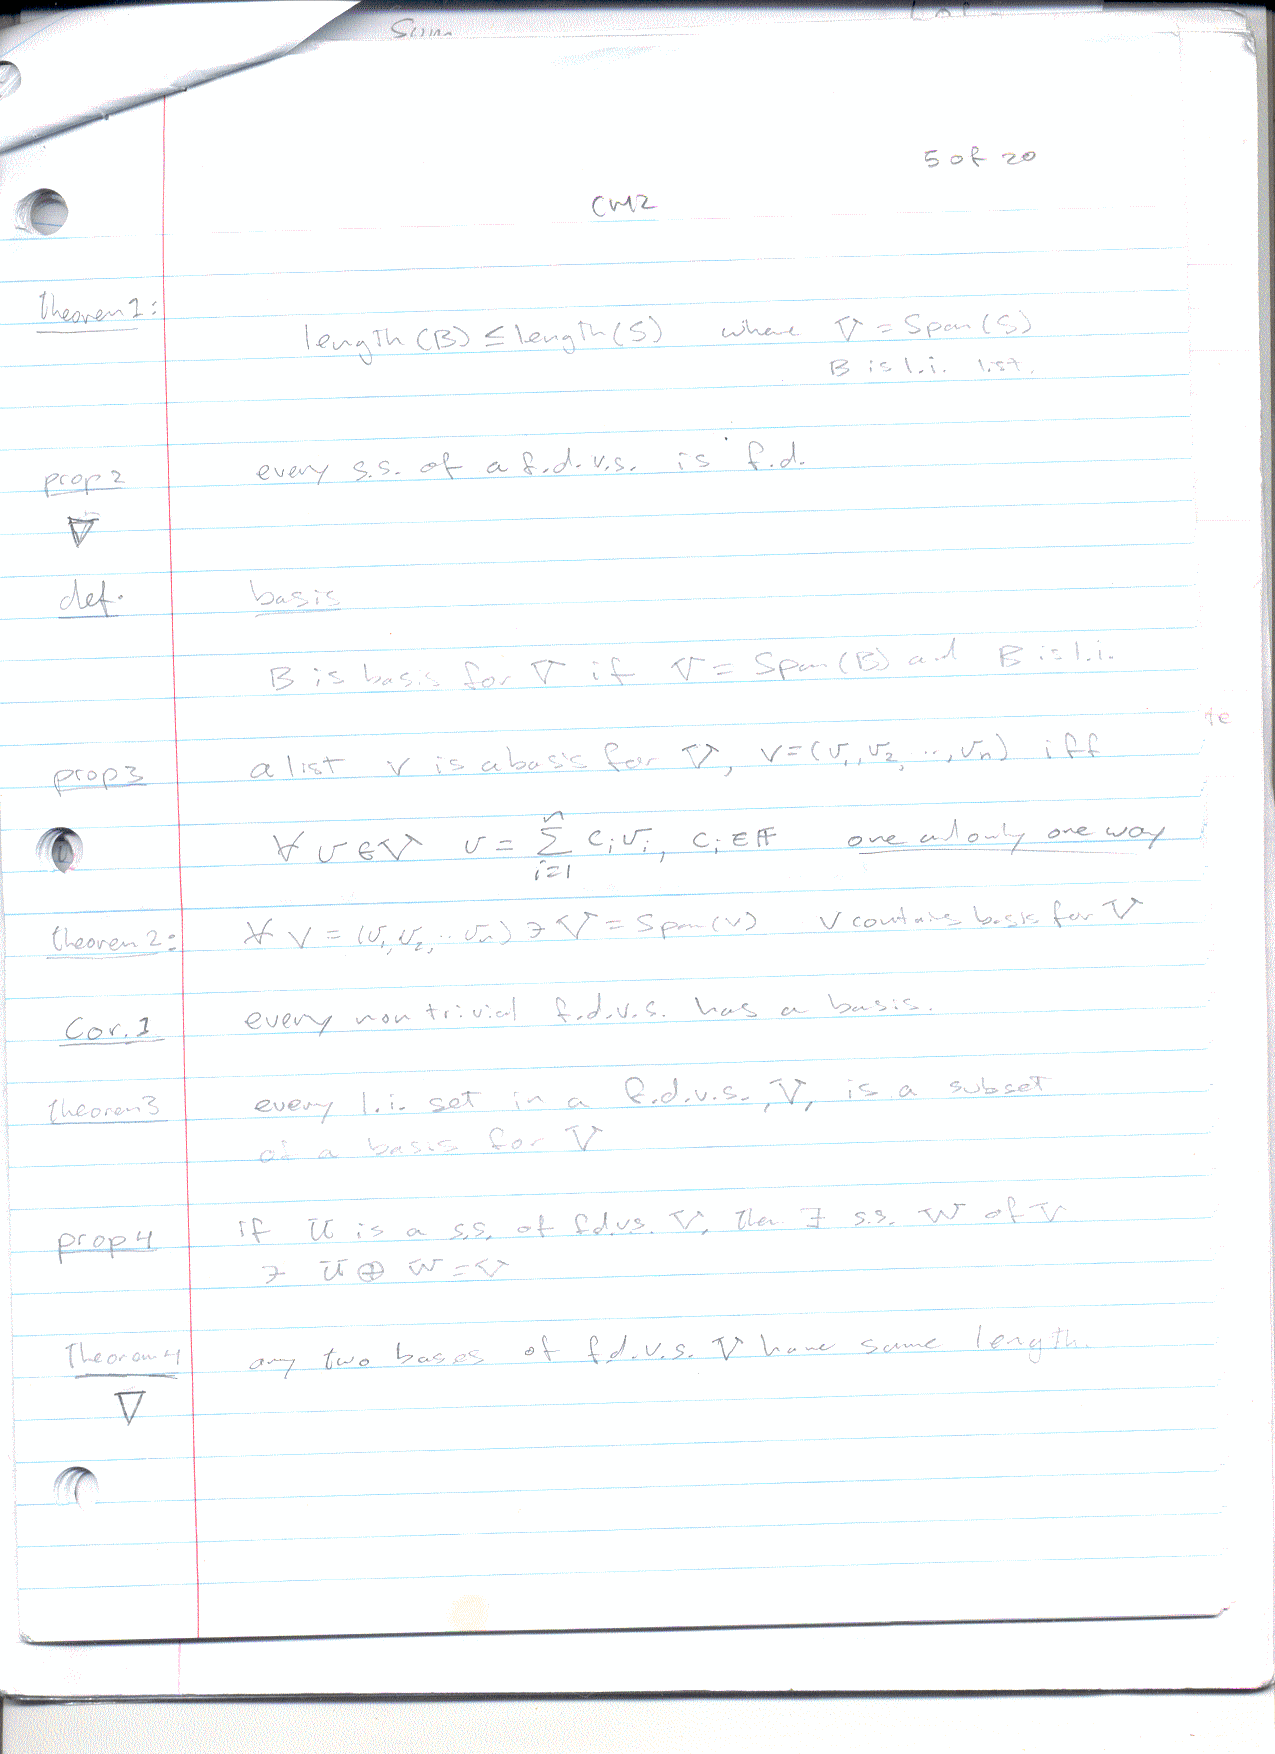 Sum
5 of 20
CH2
theorem 1:
length (B) ≤ length (S) where V = Span (S)
B is l.i. list.
prop 2 every s.s. of a f.d.v.s. is f.d.
∇
def. basis
B is basis for V if V = Span (B) and B is l.i.
prop 3 a list v is a basis for V, v=(v₁,v₂, ..,vₙ) iff
∀ v ∈ V v = ∑ᵢ₌₁ⁿ cᵢvᵢ, cᵢ ∈ 𝔽 one and only one way
theorem 2: ∀ v = (v₁,v₂,..vₙ) ∋ V = Span (v) v contains basis for V
Cor. 1 every non trivial f.d.v.s. has a basis.
theorem 3 every l.i. set in a f.d.v.s., V, is a subset
of a basis for V
prop 4 if U is a s.s. of f.d.v.s. V, then ∃ s.s. W of V
∋ U ⊕ W = V
Theorem 4 any two bases of f.d.v.s. V have same length.
∇
te